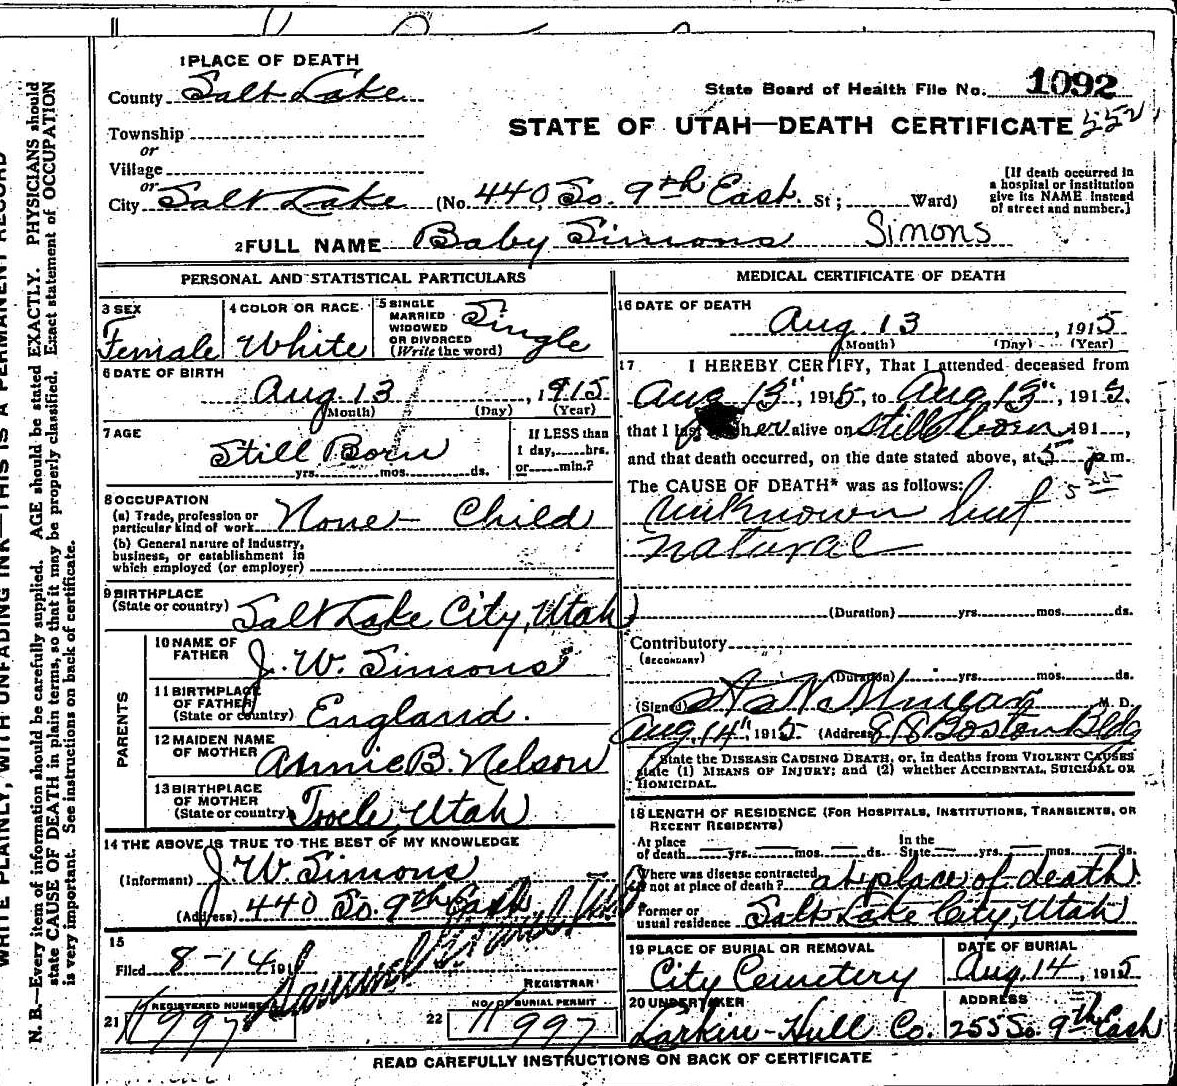 WRITE PLAINLY, WITH UNFADING INK—THIS IS A PERMANENT RECORD
N. B.—Every item of information should be carefully supplied. AGE should be stated EXACTLY. PHYSICIANS should
state CAUSE OF DEATH in plain terms, so that it may be properly classified. Exact statement of OCCUPATION
is very important. See instructions on back of certificate.
1 PLACE OF DEATH
County Salt Lake
State Board of Health File No. 1092
Township
STATE OF UTAH—DEATH CERTIFICATE 552
or
Village
or
City Salt Lake (No. 440, So. 9th East. St; Ward)
[If death occurred in
a hospital or institution
give its NAME instead
of street and number.]
2 FULL NAME Baby Simons Simons
PERSONAL AND STATISTICAL PARTICULARS
3 SEX
Female
4 COLOR OR RACE
White
5 SINGLE
MARRIED
WIDOWED
OR DIVORCED
(Write the word)
Single
6 DATE OF BIRTH
Aug. 13, 1915
(Month) (Day) (Year)
7 AGE
Still Born
yrs. mos. ds.
If LESS than
1 day, hrs.
or min.?
8 OCCUPATION
(a) Trade, profession or
particular kind of work None - Child
(b) General nature of industry,
business, or establishment in
which employed (or employer)
9 BIRTHPLACE
(State or country) Salt Lake City, Utah
PARENTS
10 NAME OF
FATHER J. W. Simons
11 BIRTHPLACE
OF FATHER
(State or country) England.
12 MAIDEN NAME
OF MOTHER Annie B. Nelson
13 BIRTHPLACE
OF MOTHER
(State or country) Tooele, Utah
14 THE ABOVE IS TRUE TO THE BEST OF MY KNOWLEDGE
(Informant) J. W. Simons
(Address) 440 So. 9th East.
15
Filed 8-14 191
REGISTRAR
REGISTERED NUMBER
21 997
NO. OF BURIAL PERMIT
22 997
MEDICAL CERTIFICATE OF DEATH
16 DATE OF DEATH
Aug 13, 1915
(Month) (Day) (Year)
17 I HEREBY CERTIFY, That I attended deceased from
Aug 13", 1915, to Aug 13", 1915.
that I last her alive on still born 191 ,
and that death occurred, on the date stated above, at 5 p m.
The CAUSE OF DEATH* was as follows:
unknown but
natural
(Duration) yrs. mos. ds.
Contributory
(SECONDARY)
(Duration) yrs. mos. ds.
(Signed) M. D.
Aug. 14", 1915. (Address) 818 Boston Bldg
*State the DISEASE CAUSING DEATH, or, in deaths from VIOLENT CAUSES
state (1) MEANS OF INJURY; and (2) whether ACCIDENTAL, SUICIDAL OR
HOMICIDAL.
18 LENGTH OF RESIDENCE (FOR HOSPITALS, INSTITUTIONS, TRANSIENTS, OR
RECENT RESIDENTS)
At place
of death yrs. mos. ds.
In the
State yrs. mos. ds.
Where was disease contracted
if not at place of death? at place of death.
Former or
usual residence Salt Lake City, Utah
19 PLACE OF BURIAL OR REMOVAL
City Cemetery
DATE OF BURIAL
Aug. 14, 1915
20 UNDERTAKER
Larkin-Hull Co.
ADDRESS
255 So. 9th East
READ CAREFULLY INSTRUCTIONS ON BACK OF CERTIFICATE